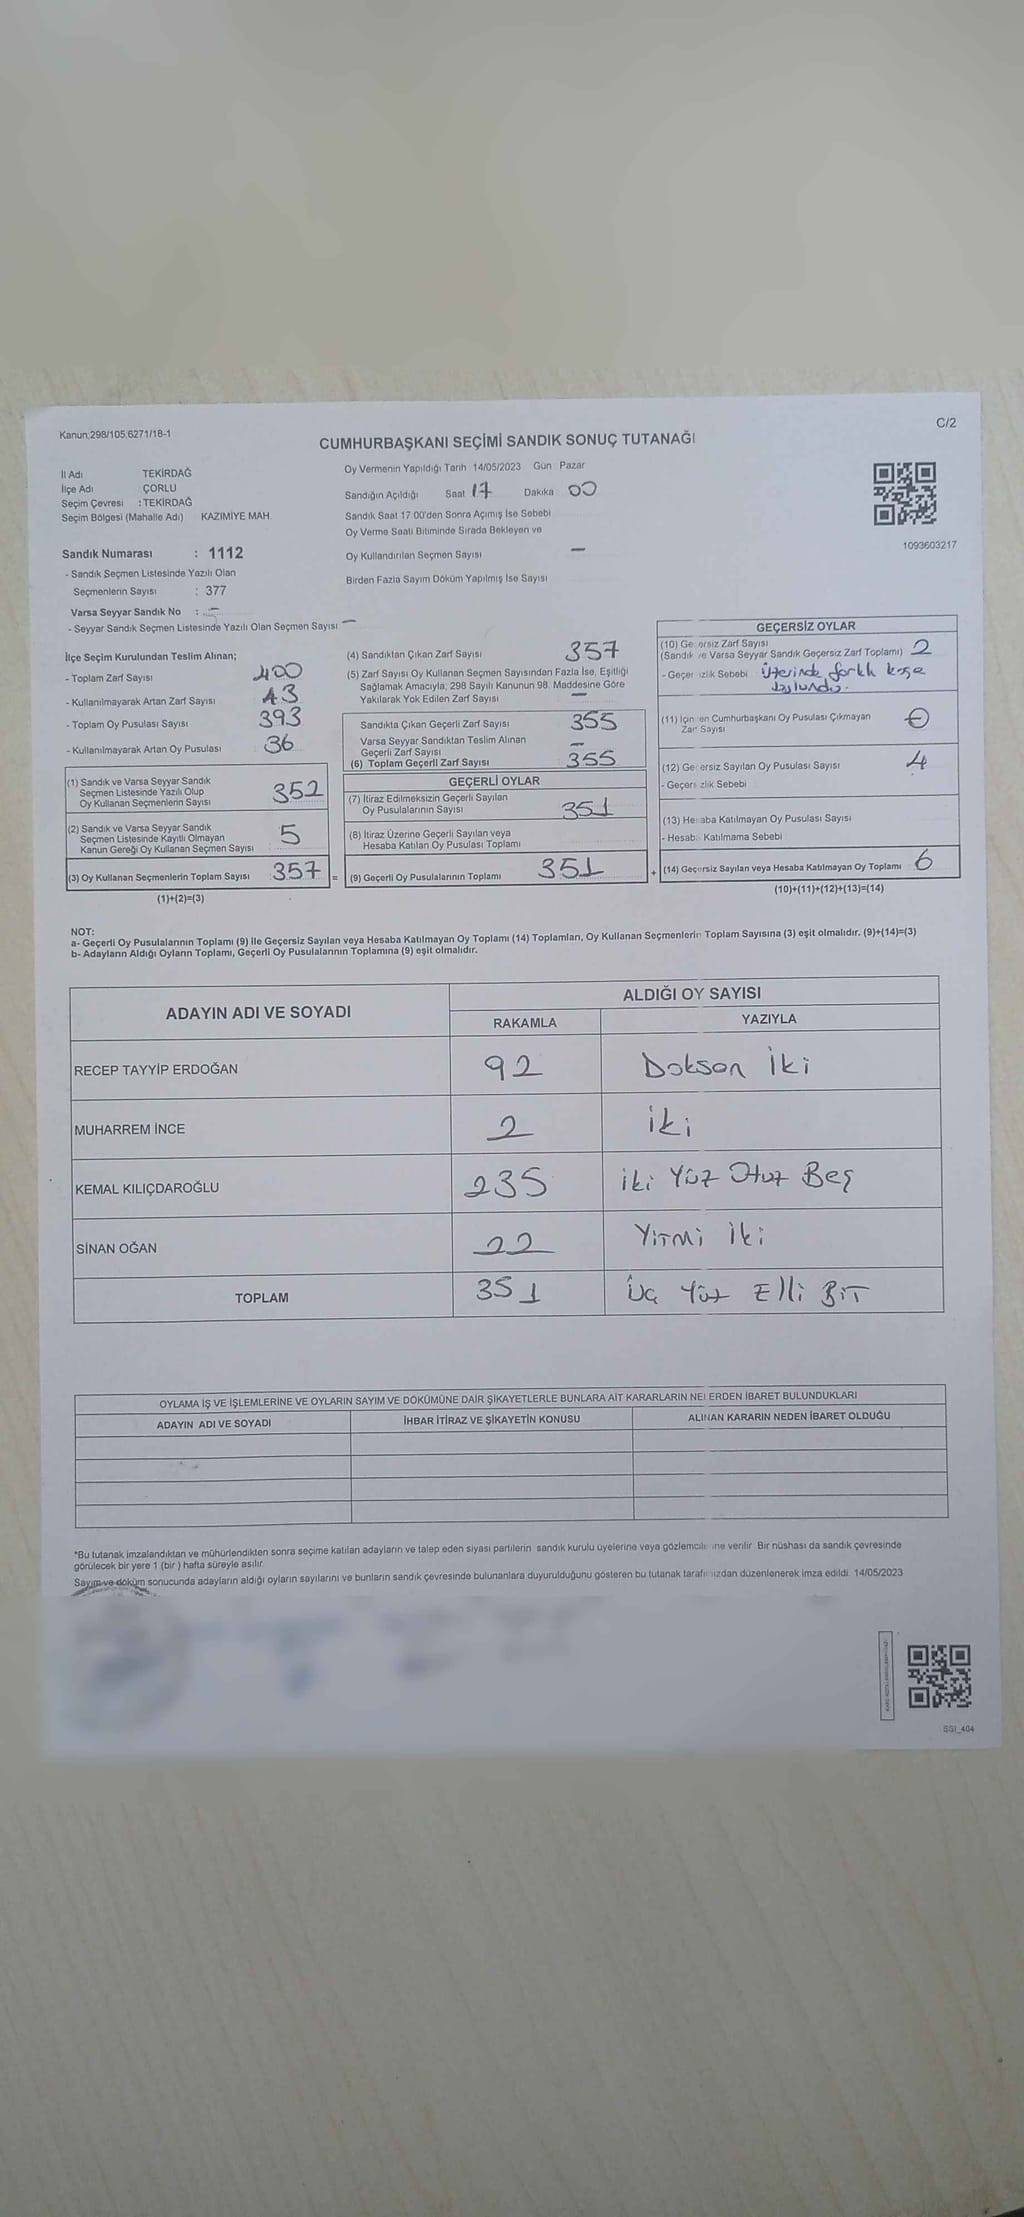 Kanun;298/105;6271/18-1
C/2
CUMHURBAŞKANI SEÇİMİ SANDIK SONUÇ TUTANAĞI
İl Adı TEKİRDAĞ
İlçe Adı ÇORLU
Seçim Çevresi : TEKİRDAĞ
Seçim Bölgesi (Mahalle Adı) KAZIMİYE MAH.
Sandık Numarası : 1112
- Sandık Seçmen Listesinde Yazılı Olan
Seçmenlerin Sayısı : 377
Varsa Seyyar Sandık No : -
- Seyyar Sandık Seçmen Listesinde Yazılı Olan Seçmen Sayısı -
Oy Vermenin Yapıldığı Tarih 14/05/2023 Gün : Pazar
Sandığın Açıldığı Saat 17 Dakika 00
Sandık Saat 17:00'den Sonra Açımış İse Sebebi
Oy Verme Saati Bitiminde Sırada Bekleyen ve
Oy Kullandırılan Seçmen Sayısı -
Birden Fazla Sayım Döküm Yapılmış İse Sayısı
1093603217
İlçe Seçim Kurulundan Teslim Alınan;
- Toplam Zarf Sayısı 400
- Kullanılmayarak Artan Zarf Sayısı 43
- Toplam Oy Pusulası Sayısı 393
- Kullanılmayarak Artan Oy Pusulası 36
(1) Sandık ve Varsa Seyyar Sandık
Seçmen Listesinde Yazılı Olup
Oy Kullanan Seçmenlerin Sayısı 352
(2) Sandık ve Varsa Seyyar Sandık
Seçmen Listesinde Kayıtlı Olmayan
Kanun Gereği Oy Kullanan Seçmen Sayısı 5
(3) Oy Kullanan Seçmenlerin Toplam Sayısı 357 =
(1)+(2)=(3)
(4) Sandıktan Çıkan Zarf Sayısı 357
(5) Zarf Sayısı Oy Kullanan Seçmen Sayısından Fazla İse, Eşitliği
Sağlamak Amacıyla; 298 Sayılı Kanunun 98. Maddesine Göre
Yakılarak Yok Edilen Zarf Sayısı -
Sandıkta Çıkan Geçerli Zarf Sayısı 355
Varsa Seyyar Sandıktan Teslim Alınan
Geçerli Zarf Sayısı -
(6) Toplam Geçerli Zarf Sayısı 355
GEÇERLİ OYLAR
(7) İtiraz Edilmeksizin Geçerli Sayılan
Oy Pusulalarının Sayısı 351
(8) İtiraz Üzerine Geçerli Sayılan veya
Hesaba Katılan Oy Pusulası Toplamı
(9) Geçerli Oy Pusulalarının Toplamı 351 +
GEÇERSİZ OYLAR
(10) Geçersiz Zarf Sayısı
(Sandık ve Varsa Seyyar Sandık Geçersiz Zarf Toplamı) 2
- Geçersizlik Sebebi Üzerinde farklı kaşe
(11) İçinden Cumhurbaşkanı Oy Pusulası Çıkmayan
Zarf Sayısı
(12) Geçersiz Sayılan Oy Pusulası Sayısı 4
- Geçersizlik Sebebi
(13) Hesaba Katılmayan Oy Pusulası Sayısı
- Hesaba Katılmama Sebebi
(14) Geçersiz Sayılan veya Hesaba Katılmayan Oy Toplamı 6
(10)+(11)+(12)+(13)=(14)
NOT:
a- Geçerli Oy Pusulalarının Toplamı (9) İle Geçersiz Sayılan veya Hesaba Katılmayan Oy Toplamı (14) Toplamları, Oy Kullanan Seçmenlerin Toplam Sayısına (3) eşit olmalıdır. (9)+(14)=(3)
b- Adayların Aldığı Oyların Toplamı, Geçerli Oy Pusulalarının Toplamına (9) eşit olmalıdır.
ADAYIN ADI VE SOYADI
ALDIĞI OY SAYISI
RAKAMLA YAZIYLA
RECEP TAYYİP ERDOĞAN 92 Doksan İki
MUHARREM İNCE 2 iki
KEMAL KILIÇDAROĞLU 235 iki Yüz Otuz Beş
SİNAN OĞAN 22 Yirmi İki
TOPLAM 351 Üç Yüz Elli Bir
OYLAMA İŞ VE İŞLEMLERİNE VE OYLARIN SAYIM VE DÖKÜMÜNE DAİR ŞİKAYETLERLE BUNLARA AİT KARARLARIN NELERDEN İBARET BULUNDUKLARI
ADAYIN ADI VE SOYADI İHBAR İTİRAZ VE ŞİKAYETİN KONUSU ALINAN KARARIN NEDEN İBARET OLDUĞU
*Bu tutanak imzalandıktan ve mühürlendikten sonra seçime katılan adayların ve talep eden siyasi partilerin sandık kurulu üyelerine veya gözlemcilerine verilir. Bir nüshası da sandık çevresinde
görülecek bir yere 1 (bir ) hafta süreyle asılır.
Sayım ve döküm sonucunda adayların aldığı oyların sayılarını ve bunların sandık çevresinde bulunanlara duyurulduğunu gösteren bu tutanak tarafımızdan düzenlenerek imza edildi. 14/05/2023
SSI_404